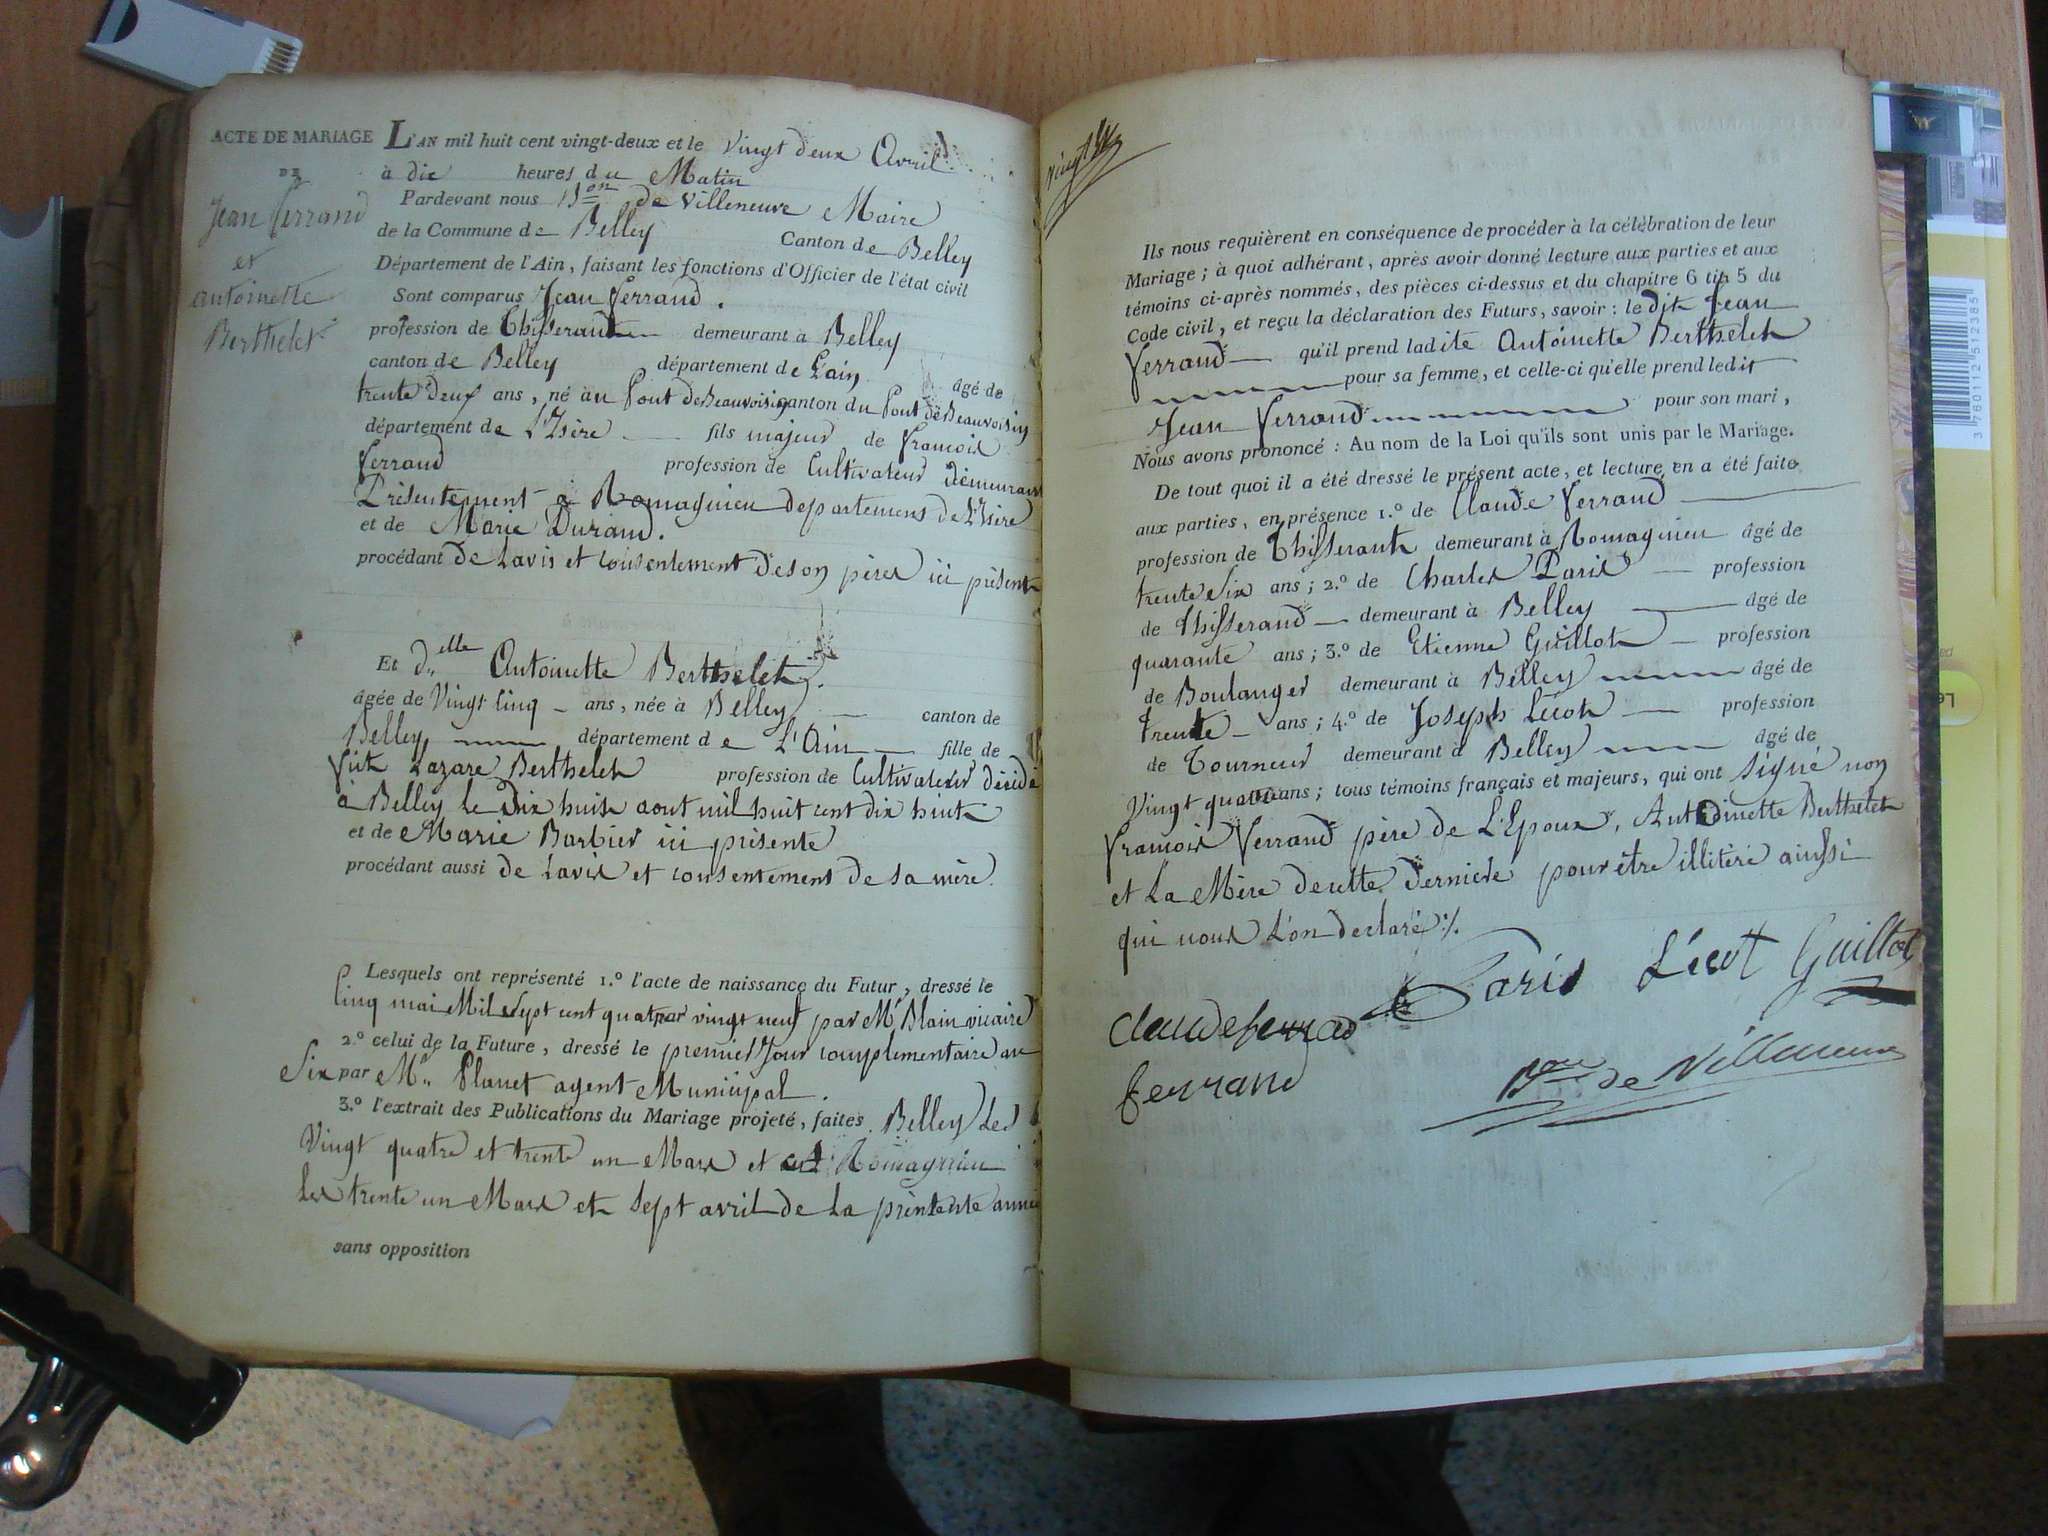 ACTE DE MARIAGE
DE
Jean ferrand
et
antoinette
Berthelet
L'AN mil huit cent vingt-deux et le Vingt deux Avril
à dix heures du Matin
Pardevant nous B.on de Villeneuve Maire
de la Commune de Belley Canton de Belley
Département de l'Ain, faisant les fonctions d'Officier de l'état civil
Sont comparus Jean ferrand.
profession de Thisserand demeurant à Belley
canton de Belley département de Lain âgé de
trente deux ans, né au Pont de Beauvoisin canton du Pont de Beauvoisin
département de L'Isère fils majeur de francois
ferrand profession de Cultivateur demeurant
Présentement a Romagnieu departement de L'Isère
et de Marie Durand.
procédant de Lavis et consentement de son père ici présent
Et d.elle Antoinette Berthelet.
âgée de Vingt Cinq ans, née à Belley canton de
Belley département de L'Ain fille de
feu Lazare Berthelet profession de Cultivateur décidé
à Belley le Dix huit aout mil huit cent dix huit
et de Marie Barbier ici présente
procédant aussi de Lavis et consentement de sa mère.
Lesquels ont représenté 1.° l'acte de naissance du Futur, dressé le
Cinq mai Mil Sept cent quatre vingt neuf par Mr Blain vicaire
2.° celui de la Future, dressé le premier Jour complementaire an
Six par Mr. Planet agent Municipal.
3.° l'extrait des Publications du Mariage projeté, faites Belley Les
Vingt quatre et trente un Mars et a Romagnieu
Les trente un Mars et Sept avril de La présente année
sans opposition
Ils nous requièrent en conséquence de procéder à la célébration de leur
Mariage; à quoi adhérant, après avoir donné lecture aux parties et aux
témoins ci-après nommés, des pièces ci-dessus et du chapitre 6 tit. 5 du
Code civil, et reçu la déclaration des Futurs, savoir: le dit Jean
ferrand qu'il prend ladite Antoinette Berthelet
pour sa femme, et celle-ci qu'elle prend ledit
Jean ferrand pour son mari,
Nous avons prononcé: Au nom de la Loi qu'ils sont unis par le Mariage.
De tout quoi il a été dressé le présent acte, et lecture en a été faite
aux parties, en présence 1.° de Claude ferrand
profession de Thisserant demeurant à Romagnieu âgé de
trente Six ans; 2.° de Charles Paris profession
de thisserand demeurant à Belley âgé de
quarante ans; 3.° de Etienne Guillot profession
de Boulanger demeurant à Belley âgé de
trente ans; 4.° de Joseph Lécot profession
de Tourneur demeurant à Belley âgé de
Vingt quatre ans; tous témoins français et majeurs, qui ont signé non
francois ferrand père de L'Epoux, Antoinette Berthelet
et La Mère de cette dernière pour être illitéré ainssi
qui nous L'on declaré ./.
Paris Lécot Guillot
Claude ferrad
ferrand
B.on de Villeneuve
3 760112 512385